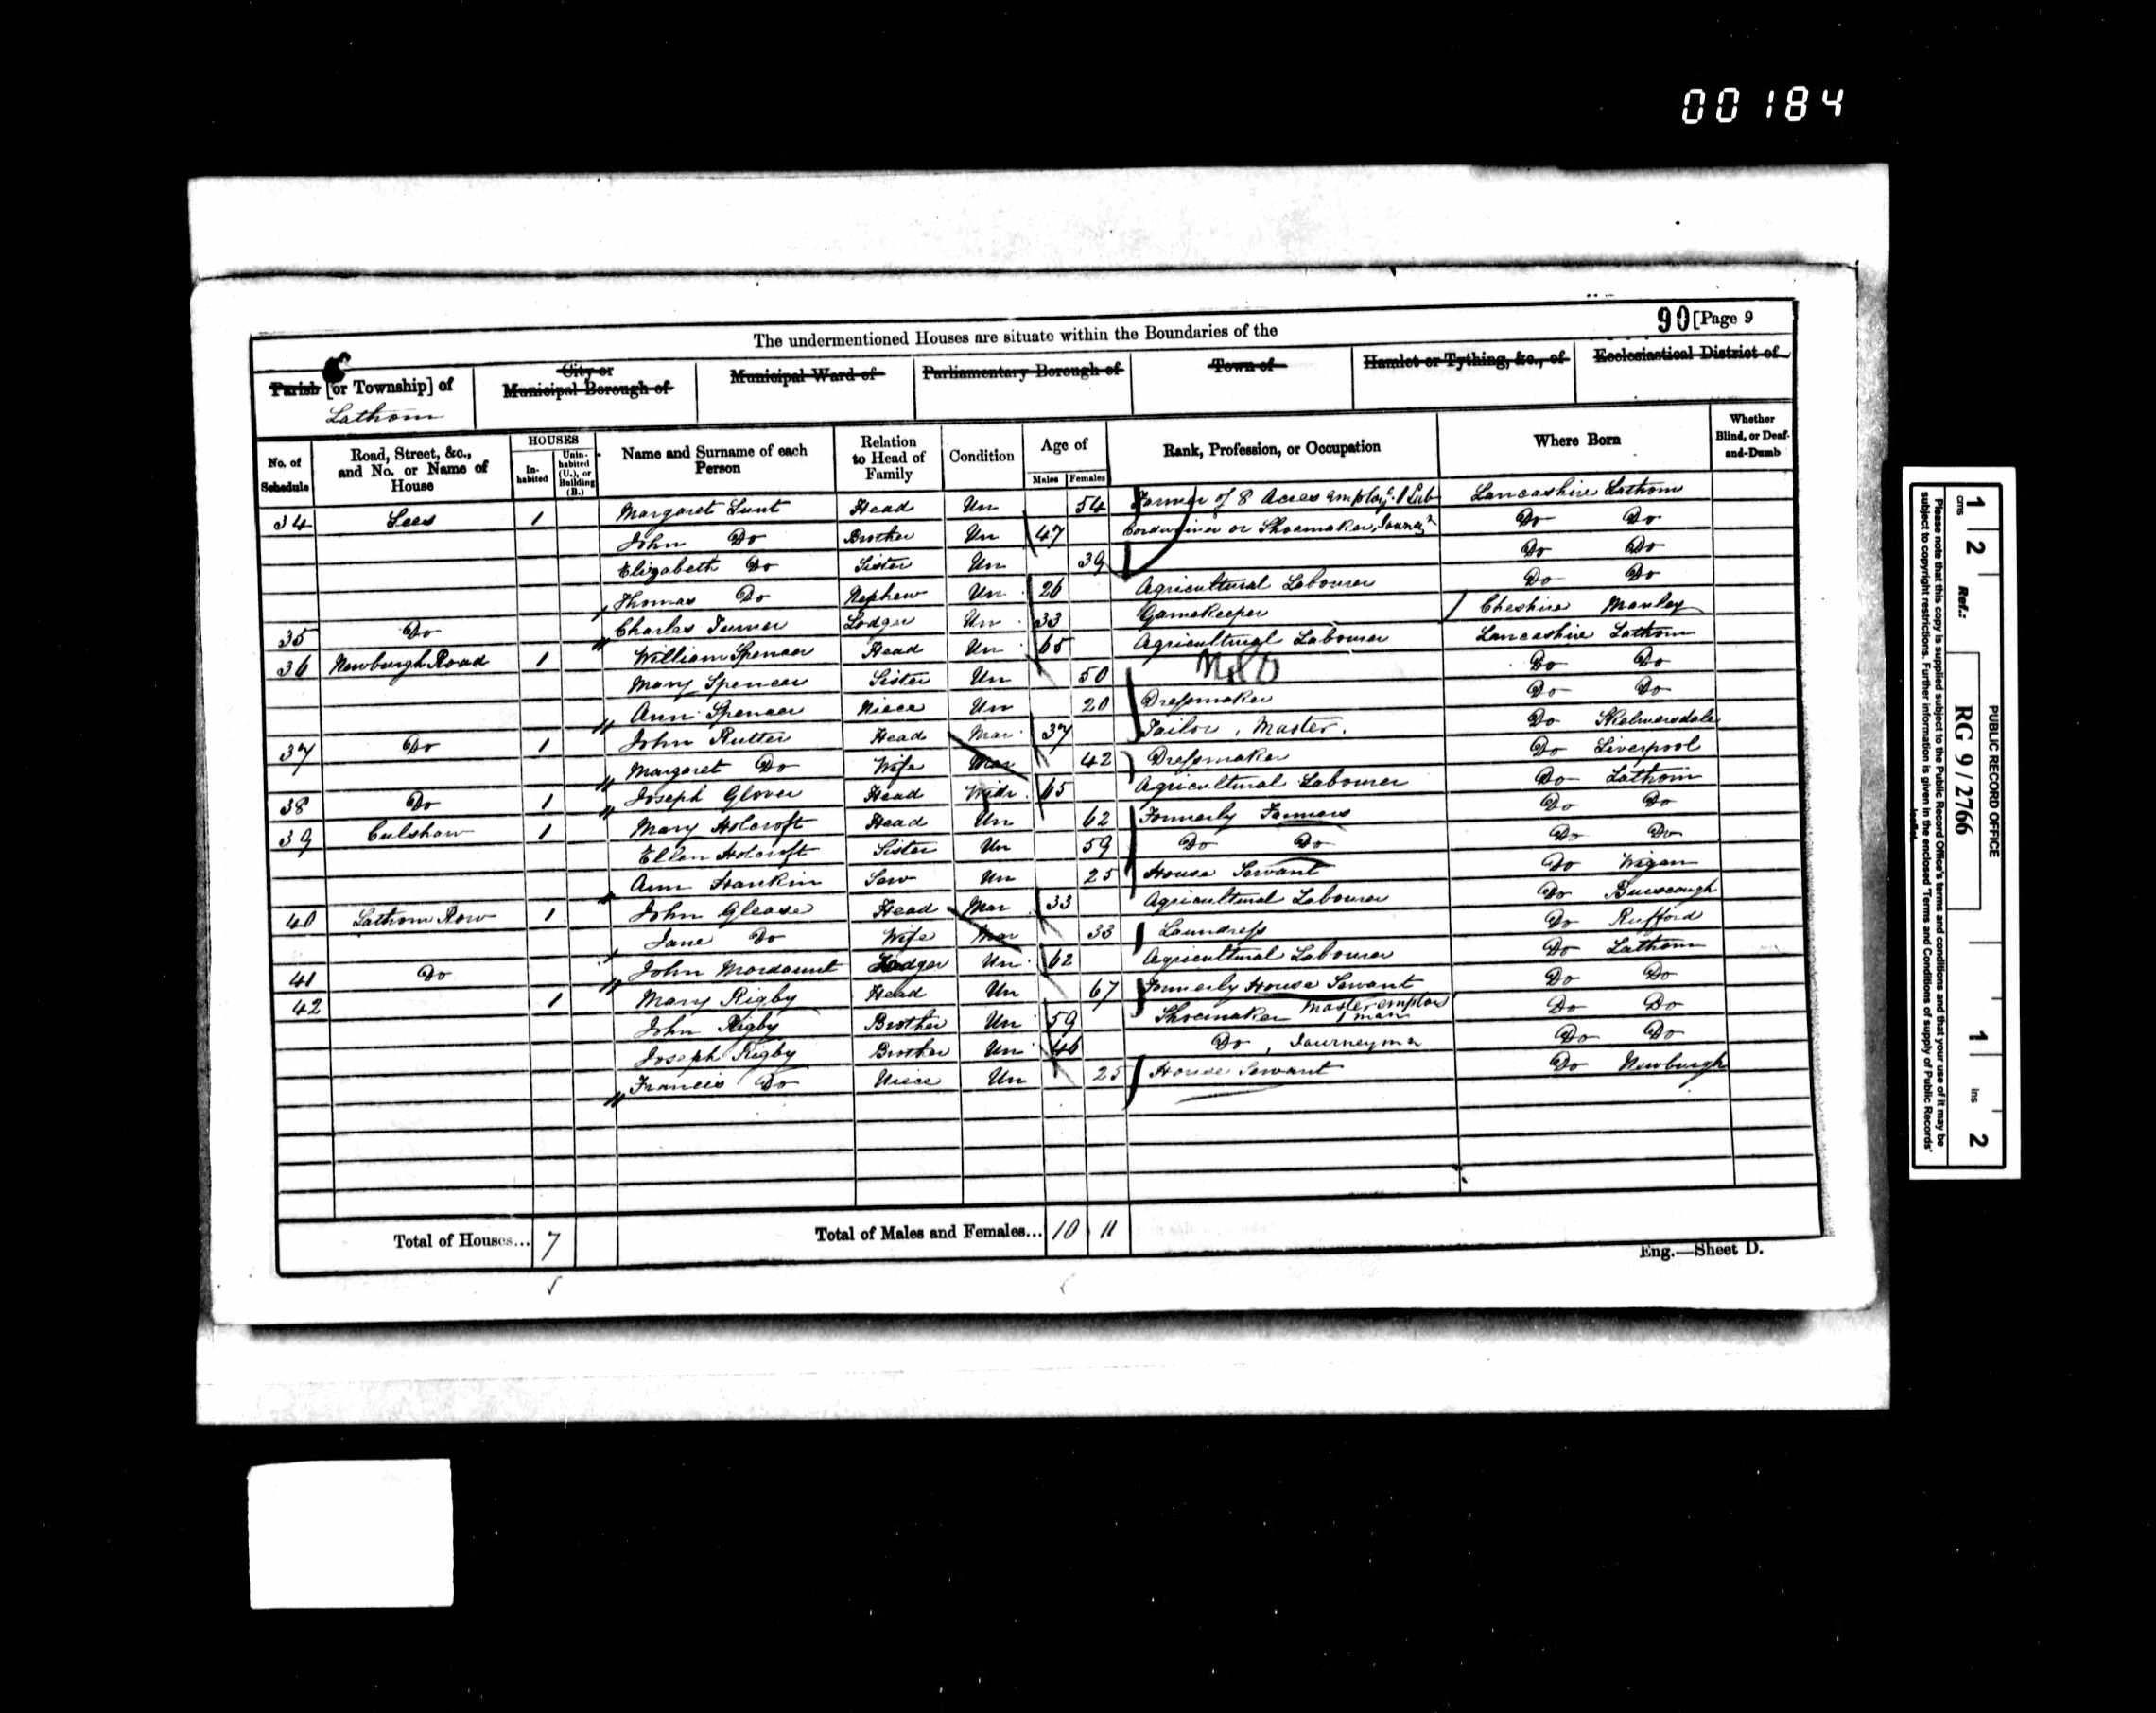 00184
The undermentioned Houses are situate within the Boundaries of the
90 [Page 9
Parish [or Township] of
City or Municipal Borough of
Municipal Ward of
Parliamentary Borough of
Town of
Hamlet or Tything, &c., of
Ecclesiastical District of
Lathom
No. of Schedule
Road, Street, &c., and No. or Name of House
HOUSES
In-habited
Unin-habited (U.), or Building (B.)
Name and Surname of each Person
Relation to Head of Family
Condition
Age of
Males
Females
Rank, Profession, or Occupation
Where Born
Whether Blind, or Deaf-and-Dumb
34 Lees 1 Margaret Lunt Head Un 54 Farmer of 8 Acres employg 1 Lab Lancashire Lathom
John Do Brother Un 47 Cordwainer or Shoemaker, Do Do
Elizabeth Do Sister Un 39 Do Do
Thomas Do Nephew Un 26 Agricultural Labourer Do Do
35 Do Charles Turner Lodger Un 33 Gamekeeper Cheshire Manley
36 Newburgh Road 1 William Spencer Head Un 65 Agricultural Labourer Lancashire Lathom
Mary Spencer Sister Un 50 Do Do
Ann Spencer Niece Un 20 Dressmaker Do Do
37 Do 1 John Rutter Head Mar 37 Tailor, Master. Do Skelmersdale
Margaret Do Wife Mar 42 Dressmaker Do Liverpool
38 Do 1 Joseph Glover Head Widr 65 Agricultural Labourer Do Lathom
39 Culshaw 1 Mary Holcroft Head Un 62 Formerly Farmers Do Do
Ellen Holcroft Sister Un 59 Do Do Do Do
Ann Hankin Serv Un 25 House Servant Do Wigan
40 Lathom Row 1 John Glease Head Mar 33 Agricultural Labourer Do Burscough
Jane Do Wife Mar 33 Laundress Do Rufford
41 Do John Mordaunt Lodger Un 62 Agricultural Labourer Do Lathom
42 1 Mary Rigby Head Un 67 Formerly House Servant Do Do
John Rigby Brother Un 59 Shoemaker Master employs 1 man Do Do
Joseph Rigby Brother Un 46 Do, Journeyman Do Do
Francis Do Niece Un 25 House Servant Do Newburgh
Total of Houses... 7
Total of Males and Females... 10 11
Eng.—Sheet D.
1 2 1 2
cms ins
Ref.:
RG 9/2766
PUBLIC RECORD OFFICE
Please note that this copy is supplied subject to the Public Record Office's terms and conditions and that your use of it may be
subject to copyright restrictions. Further information is given in the enclosed 'Terms and Conditions of supply of Public Records'
leaflet